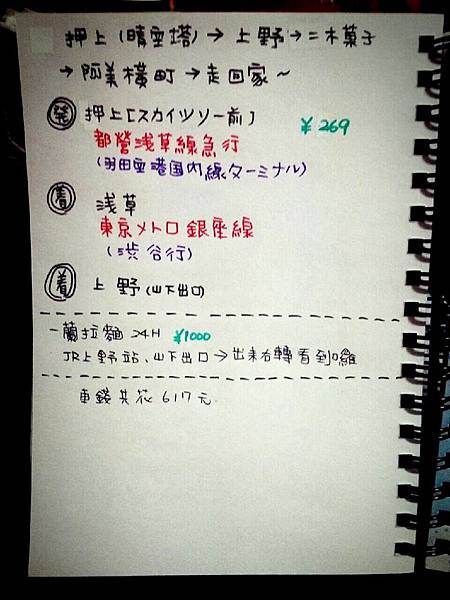 押上(晴空塔)→上野→二木菓子
→阿美橫町→走回家～
発 押上[スカイツリー前] ¥269
都營浅草線急行
(羽田空港国内線ターミナル)
着 浅草
東京メトロ銀座線
(渋谷行)
着 上野(山下出口)
一蘭拉麵 24H ¥1000
JR上野站、山下出口→出来右轉看到囉
車錢共花617元.